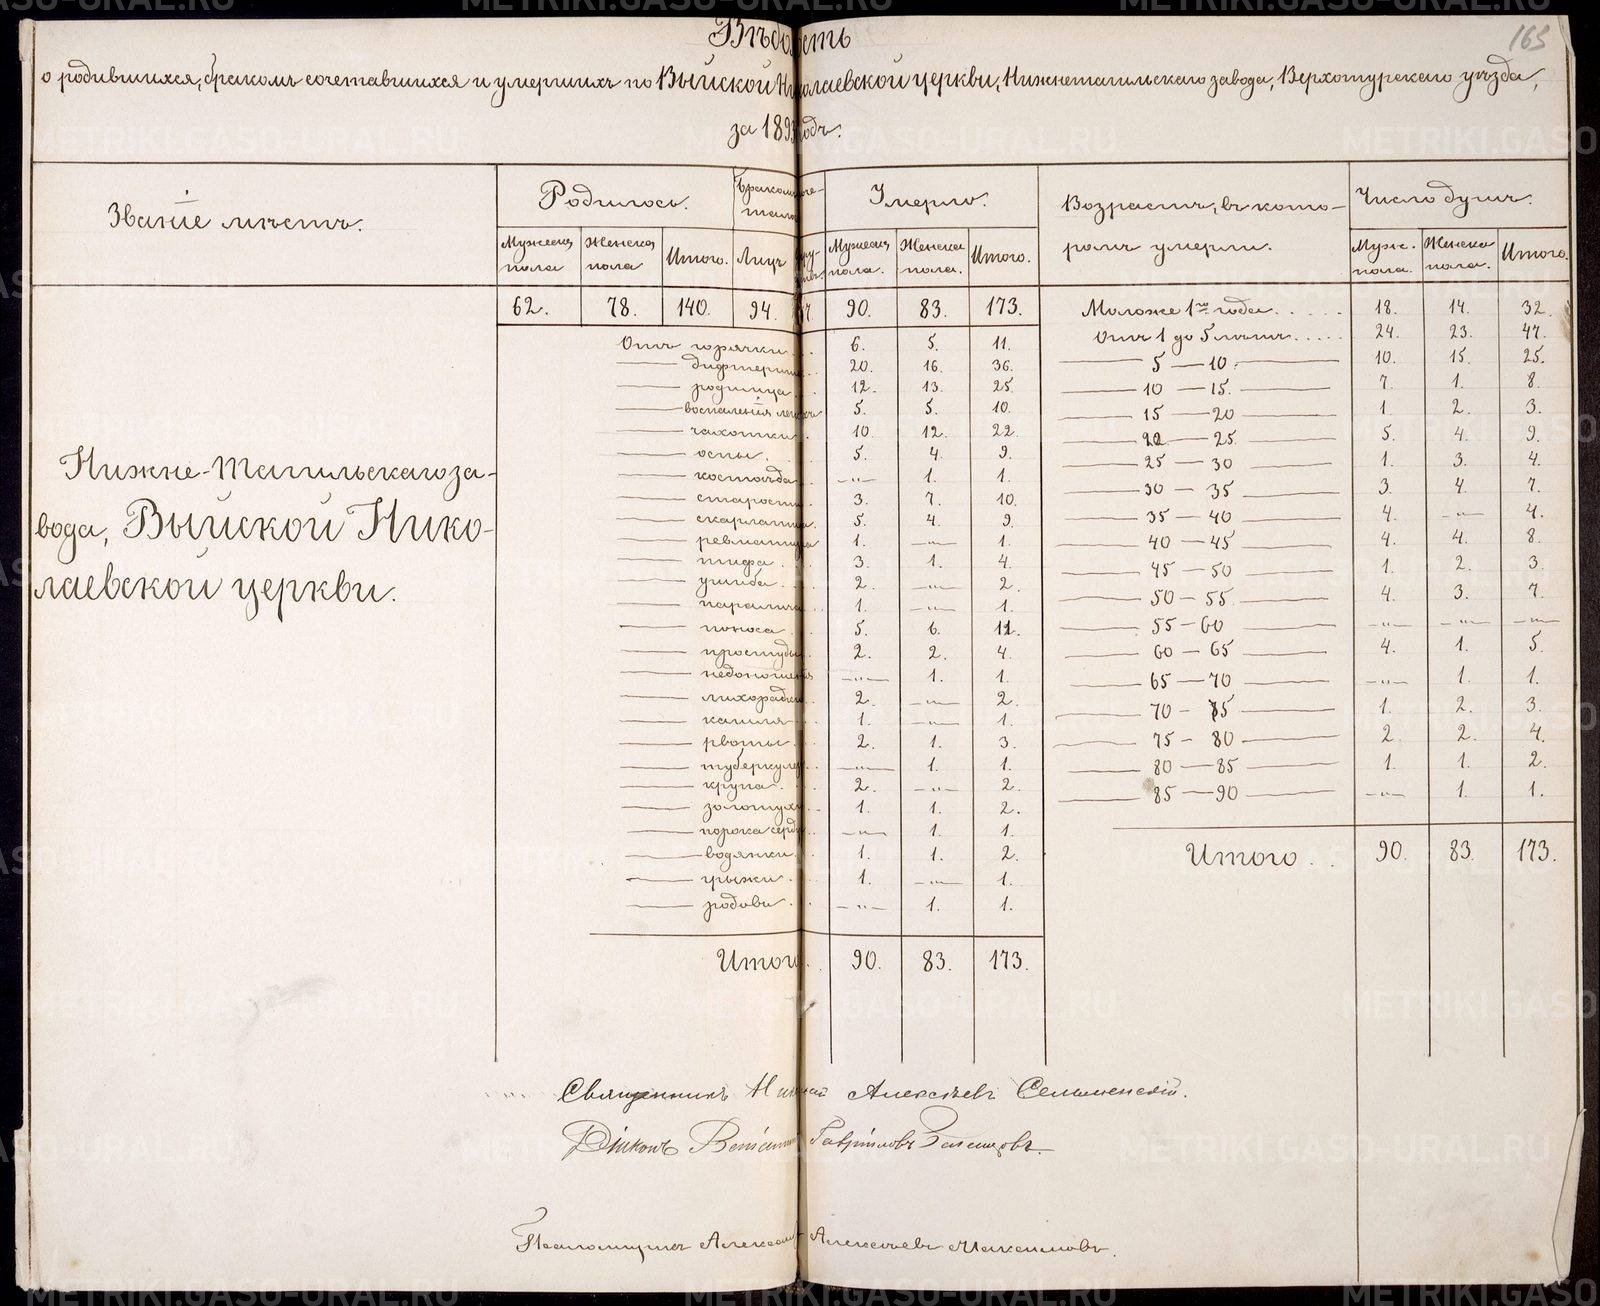 165
Вѣдомость
о родившихся, бракомъ сочетавшихся и умершихъ по Выйской Николаевской церкви, Нижнетагильскаго завода, Верхотурскаго уѣзда,
за 1893 годъ.
Званіе мѣстъ.
Родилось.
Умерло.
Возрастъ, въ кото-
ромъ умерли.
Число душъ.
Мужеска пола
Женска пола
Итого.
Лицъ
Мужеска пола.
Женска пола.
Итого.
Муж. пола.
Женска пола.
Итого.
Нижне-Тагильскаго за-
вода, Выйской Нико-
лаевской церкви.
62. 78. 140. 94. 47. 90. 83. 173.
Отъ горячки 6. 5. 11.
— дифтерита 20. 16. 36.
— родимца 12. 13. 25.
— воспаленія легкихъ 5. 5. 10.
— чахотки 10. 12. 22.
— оспы 5. 4. 9.
— костоѣда —"— 1. 1.
— старости 3. 7. 10.
— скарлатина 5. 4. 9.
— ревматизма 1. —"— 1.
— тифа 3. 1. 4.
— ушиба 2. —"— 2.
— паралича 1. —"— 1.
— поноса 5. 6. 11.
— простуды 2. 2. 4.
— недоношенія —"— 1. 1.
— лихорадки 2. —"— 2.
— кашля 1. —"— 1.
— рвоты 2. 1. 3.
— туберкулеза —"— 1. 1.
— крупа 2. —"— 2.
— золотухи 1. 1. 2.
— порока сердца —"— 1. 1.
— водянки 1. 1. 2.
— грыжи 1. —"— 1.
— родовъ —"— 1. 1.
Итого 90. 83. 173.
Моложе 1го года 18. 14. 32.
Отъ 1 до 5 лѣтъ 24. 23. 47.
— 5 — 10 — 10. 15. 25.
— 10 — 15. — 7. 1. 8.
— 15 — 20 — 1. 2. 3.
— 20 — 25 — 5. 4. 9.
— 25 — 30 — 1. 3. 4.
— 30 — 35 — 3. 4. 7.
— 35 — 40 — 4. —"— 4.
— 40 — 45 — 4. 4. 8.
— 45 — 50 — 1. 2. 3.
— 50 — 55 — 4. 3. 7.
— 55 — 60 — —"— —"— —"—
— 60 — 65 — 4. 1. 5.
— 65 — 70 — —"— 1. 1.
— 70 — 75 — 1. 2. 3.
— 75 — 80 — 2. 2. 4.
— 80 — 85 — 1. 1. 2.
— 85 — 90 — —"— 1. 1.
Итого 90. 83. 173.
Священникъ Николай Алексѣевъ
Діаконъ Гавріиловъ
Псаломщикъ Александръ Алексѣевъ Максимовъ.
METRIKI.GASO-URAL.RU